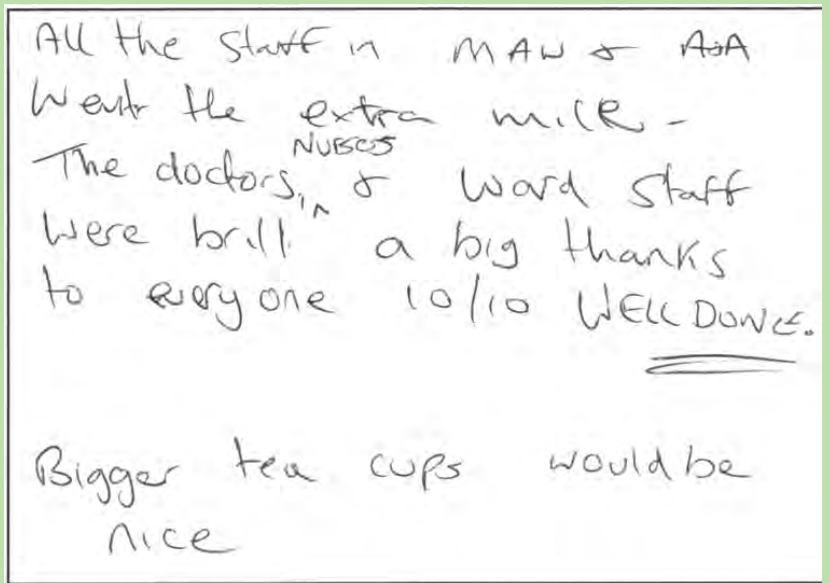 All the Staff in MAW & A&A
Went the extra mile -
The doctors, NURSES & Ward Staff
Were brill a big thanks
to everyone 10/10 WELL DONE.
Bigger tea cups would be
nice